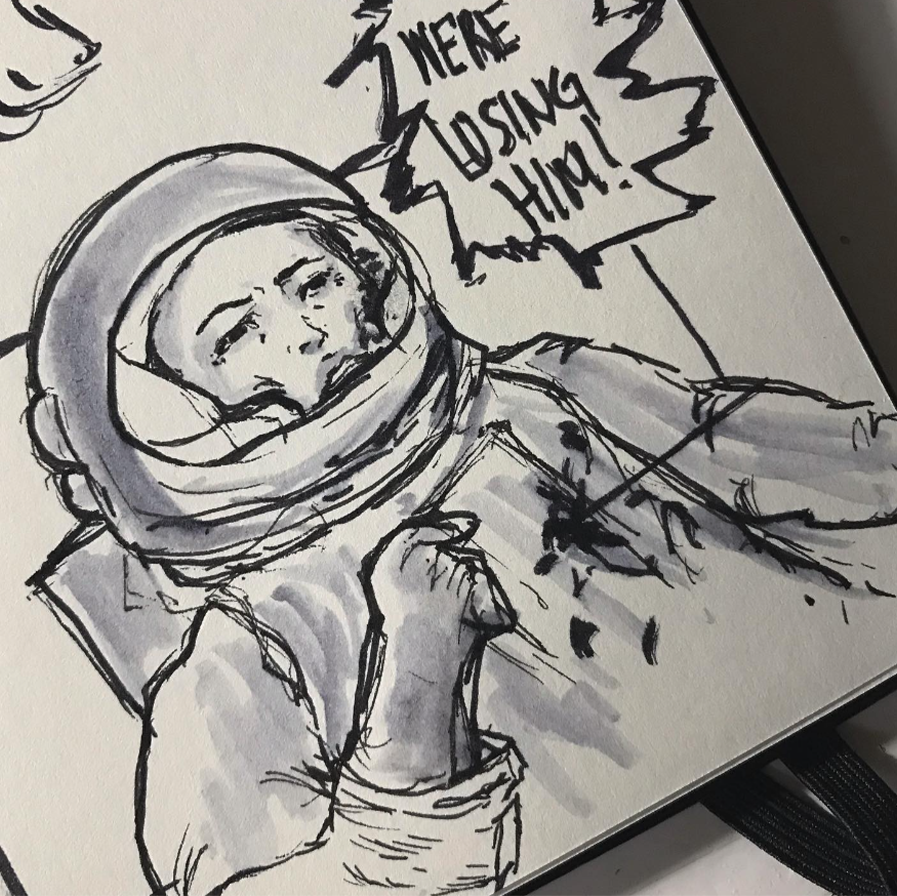 WERE
LOSING
HIM!